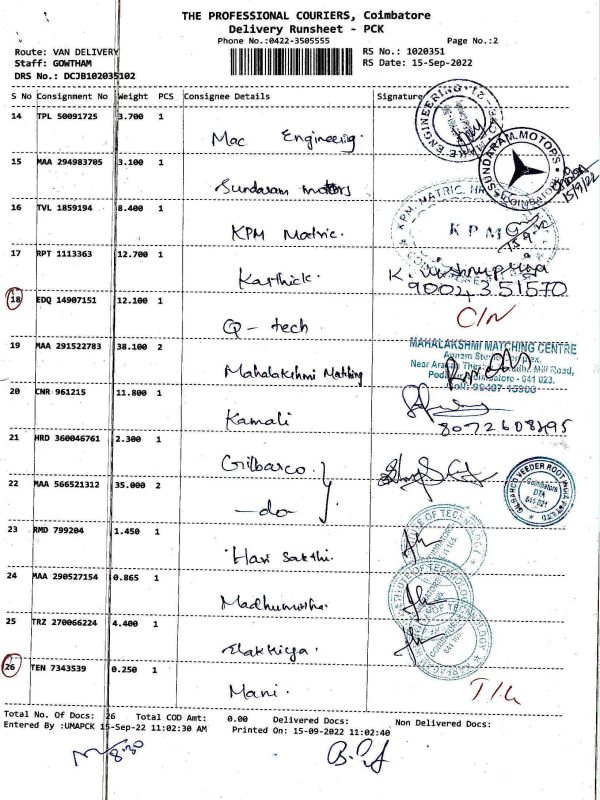 THE PROFESSIONAL COURIERS, Coimbatore
Delivery Runsheet - PCK
Phone No.:0422-3505555 Page No.:2
Route: VAN DELIVERY RS No.: 1020351
Staff: GOWTHAM RS Date: 15-Sep-2022
DRS No.: DCJB102035102
S No Consignment No Weight PCS Consignee Details Signature
14 TPL 50091725 3.700 1
Mac Engineering.
15 MAA 294983705 3.100 1
Sundaram motors
SUNDARAM MOTORS
15/9/22
16 TVL 1859194 8.400 1
KPM Matric.
KPM
17 RPT 1113363 12.700 1
Karthick.
9002435 1570
18 EDQ 14907151 12.100 1
Q - tech
C/N
19 MAA 291522783 38.100 2
MAHALAKSHMI MATCHING CENTRE
Mahalakshmi Matching
641 023.
20 CNR 961215 11.800 1
Kamali
21 HRD 360046761 2.300 1
Gilbarco.
22 MAA 566521312 35.000 2
-do-
GILBARCO VEEDER ROOT INDIA PVT LTD
Coimbatore
DTA
641 021
23 RMD 799204 1.450 1
Hari Sakthi.
24 MAA 290527154 0.865 1
25 TRZ 270066224 4.400 1
Elakkiya.
26 TEN 7343539 0.250 1
Mani.
Total No. Of Docs: 26 Total COD Amt: 0.00 Delivered Docs: Non Delivered Docs:
Entered By :UMAPCK 15-Sep-22 11:02:30 AM Printed On: 15-09-2022 11:02:40
8:30